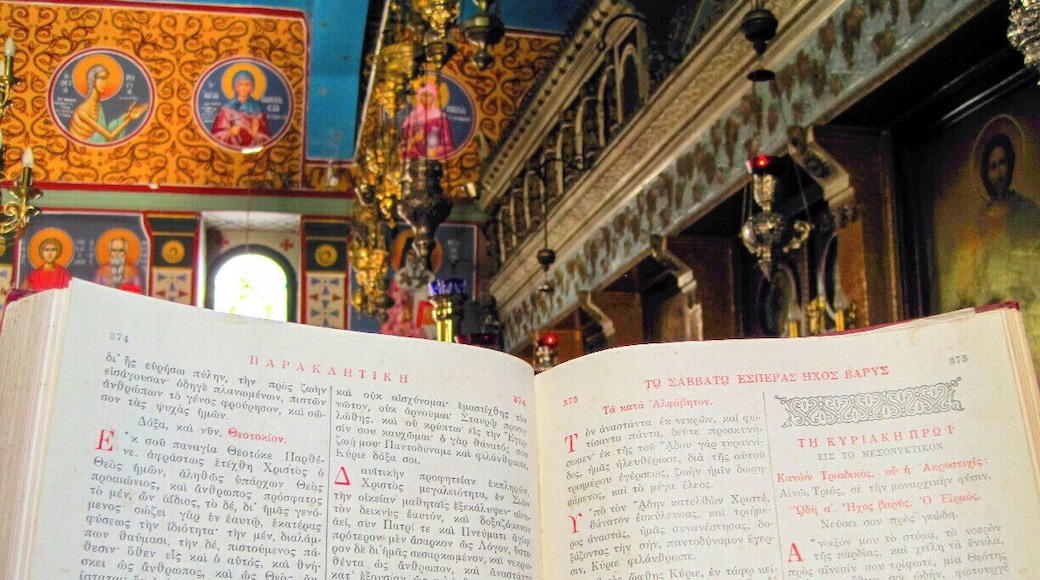 374
ΠΑΡΑΚΛΗΤΙΚΗ
374
δι' ἧς εὑρήσω πύλην, τὴν πρὸς ζωὴν
εἰσάγουσαν· ὁδηγὲ πλανωμένων, πιστῶν
ἀνθρώπων τὸ γένος φρούρησον, καὶ σῶ-
σον τὰς ψυχὰς ἡμῶν.
Δόξα, καὶ νῦν. Θεοτοκίον.
Ἐκ σοῦ παναγία Θεοτόκε Παρθέ-
νε, ἀφράστως ἐτέχθη Χριστὸς ὁ
Θεὸς ἡμῶν, ἀληθῶς ὑπάρχων Θεὸς
προαιώνιος, καὶ ἄνθρωπος πρόσφατος
τὸ μέν, ὢν ἀΐδιος, τὸ δέ, δι' ἡμᾶς γενό-
μενος· σώζει γὰρ ἐν ἑαυτῷ, ἑκατέρας
φύσεως τὴν ἰδιότητα· τὴν μέν, διαλάμ-
πων θαύμασι, τὴν δέ, πιστούμενος πά-
θεσιν· ὅθεν εἷς καὶ ὁ αὐτός, καὶ θνή-
σκει ὡς ἄνθρωπος, καὶ ὡς Θεὸς
καὶ οὐκ αἰσχύνομαι· ἐμαστίχθης τὸν
νῶτον, οὐκ ἀρνοῦμαι· Σταυρῷ προση-
λώθης, καὶ οὐ κρύπτω· εἰς τὴν Ἔγερ-
σίν σου καυχῶμαι· ὁ γὰρ θάνατός σου
ζωή μου· Παντοδύναμε καὶ φιλάνθρωπε,
Κύριε δόξα σοι.
Δαυϊτικὴν προφητείαν ἐκπληρῶν,
Χριστὸς μεγαλειότητα, ἐν Σιὼν
τὴν οἰκείαν μαθηταῖς ἐξεκάλυψεν· αἰνε-
τὸν δεικνὺς ἑαυτόν, καὶ δοξαζόμενον
ἀεί, σὺν Πατρί τε καὶ Πνεύματι ἁγίῳ
πρότερον μὲν ἄσαρκον ὡς Λόγον, ὕστε-
ρον δὲ δι' ἡμᾶς σεσαρκωμένον, καὶ νεκρω-
θέντα ὡς ἄνθρωπον, καὶ ἀναστάντα
κατ' ἐξουσίαν
375
ΤΩ ΣΑΒΒΑΤΩ ΕΣΠΕΡΑΣ ΗΧΟΣ ΒΑΡΥΣ
375
Τὰ κατὰ Ἀλφάβητον.
Τὸν ἀναστάντα ἐκ νεκρῶν, καὶ φω-
τίσαντα πάντα, δεῦτε προσκυνή-
σωμεν· ἐκ τῆς τοῦ Ἅδου γὰρ τυραννί-
δος, ἡμᾶς ἠλευθέρωσε, διὰ τῆς αὐτοῦ
τριημέρου ἐγέρσεως, ζωὴν ἡμῖν δωρη-
σάμενος, καὶ τὸ μέγα ἔλεος.
Ὑπὸ τὸν Ἅδην κατελθὼν Χριστέ,
θάνατον ἐσκύλευσας, καὶ τριήμε-
ρος ἀναστάς, ἡμᾶς συνανέστησας, δο-
ξάζοντας τὴν σήν, παντοδύναμον ἔγερ-
σιν, Κύριε φιλάνθρωπε.
ὤφθης Κύριε, ἐν τάφῳ κεί-
ΤΗ ΚΥΡΙΑΚΗ ΠΡΩΪ
ΕΙΣ ΤΟ ΜΕΣΟΝΥΚΤΙΚΟΝ
Κανὼν Τριαδικός, οὗ ἡ Ἀκροστιχίς:
Αἰνῶ, Τριάς, σὲ τὴν μοναρχικὴν φύσιν.
ᾨδὴ α'. Ἦχος βαρύς. Ὁ Εἱρμός.
Νεύσει σου πρὸς γεώδη.
Ἄνοιξόν μου τὸ στόμα, τὸ νοερὸν
τῆς καρδίας, καὶ χείλη τὰ ἔνυλα,
πρὸς αἴνεσίν σου τρίφωτε, μία Θεότης